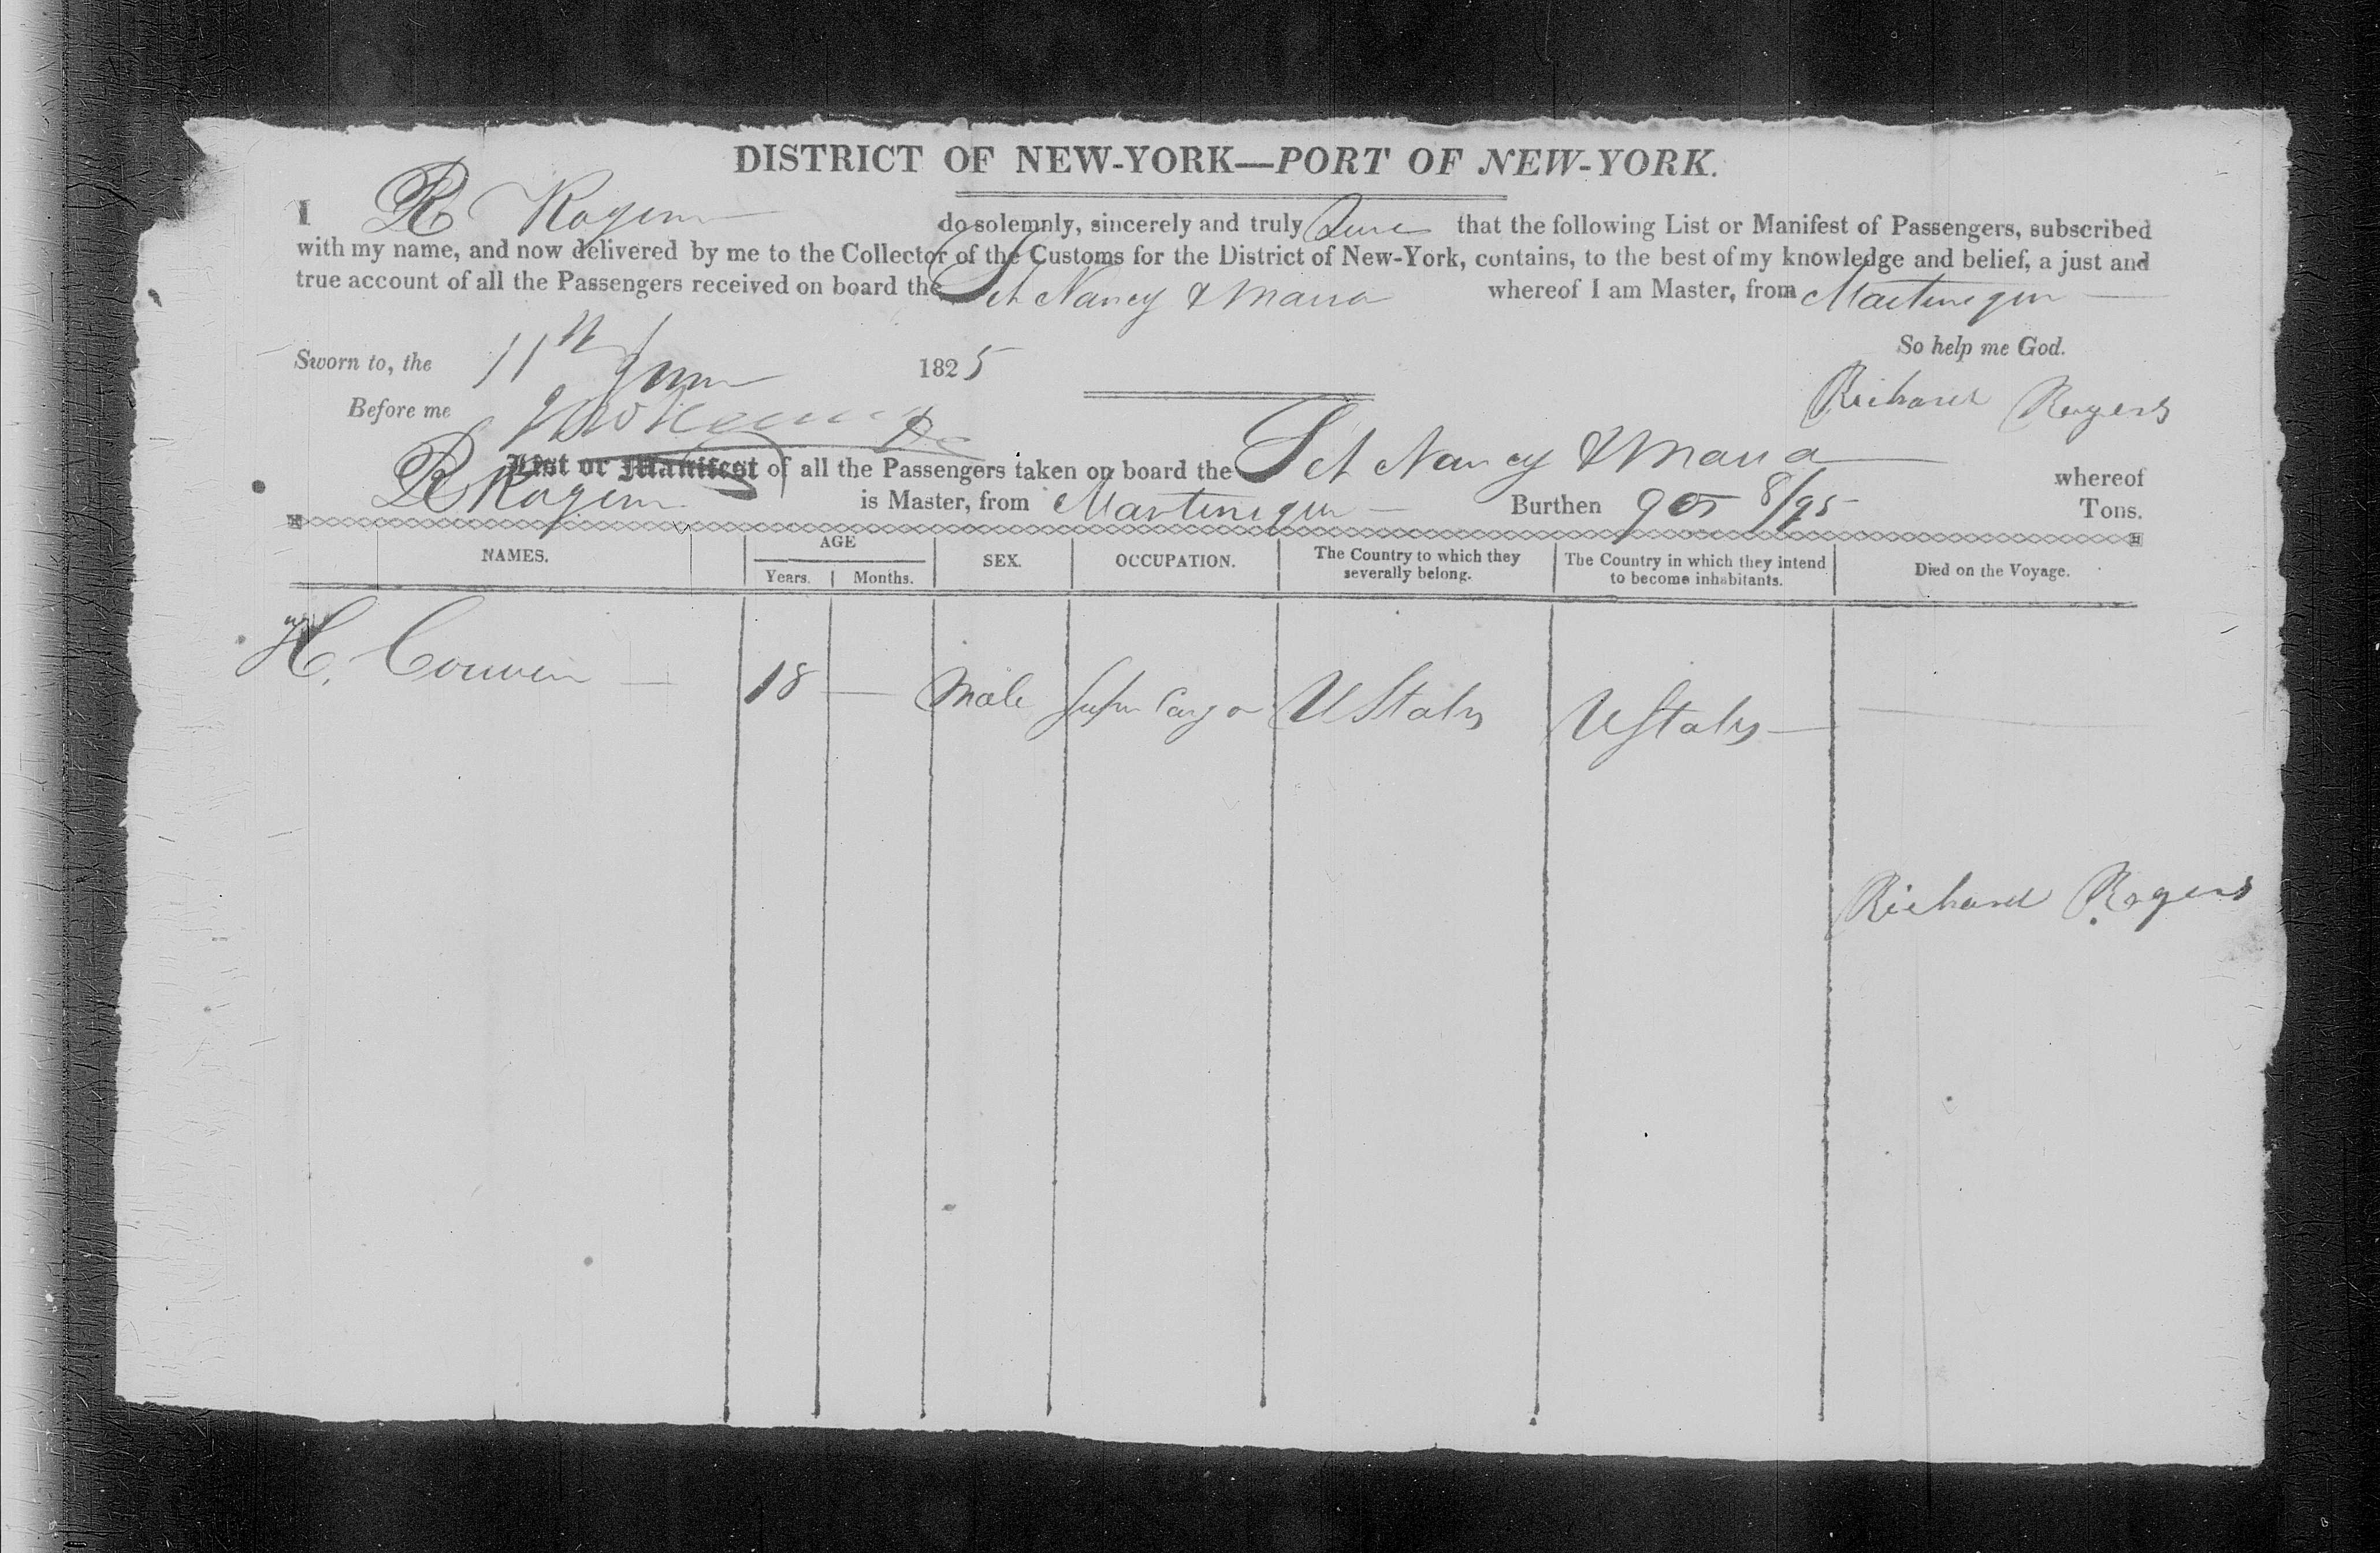 DISTRICT OF NEW-YORK—PORT OF NEW-YORK.
I R Rogers do solemnly, sincerely and truly Swear that the following List or Manifest of Passengers, subscribed
with my name, and now delivered by me to the Collector of the Customs for the District of New-York, contains, to the best of my knowledge and belief, a just and
true account of all the Passengers received on board the Sch Nancy & Maria whereof I am Master, from Martinique
So help me God.
Sworn to, the 11th June 1825
Richard Rogers
Before me
List or Manifest of all the Passengers taken on board the Sch Nancy & Maria whereof
R Rogers is Master, from Martinique Burthen 90 8/95 Tons.
NAMES. AGE SEX. OCCUPATION. The Country to which they severally belong. The Country in which they intend to become inhabitants. Died on the Voyage.
Years. Months.
H. Corwin 18 — Male Super Cargo UStates UStates —
Richard Rogers